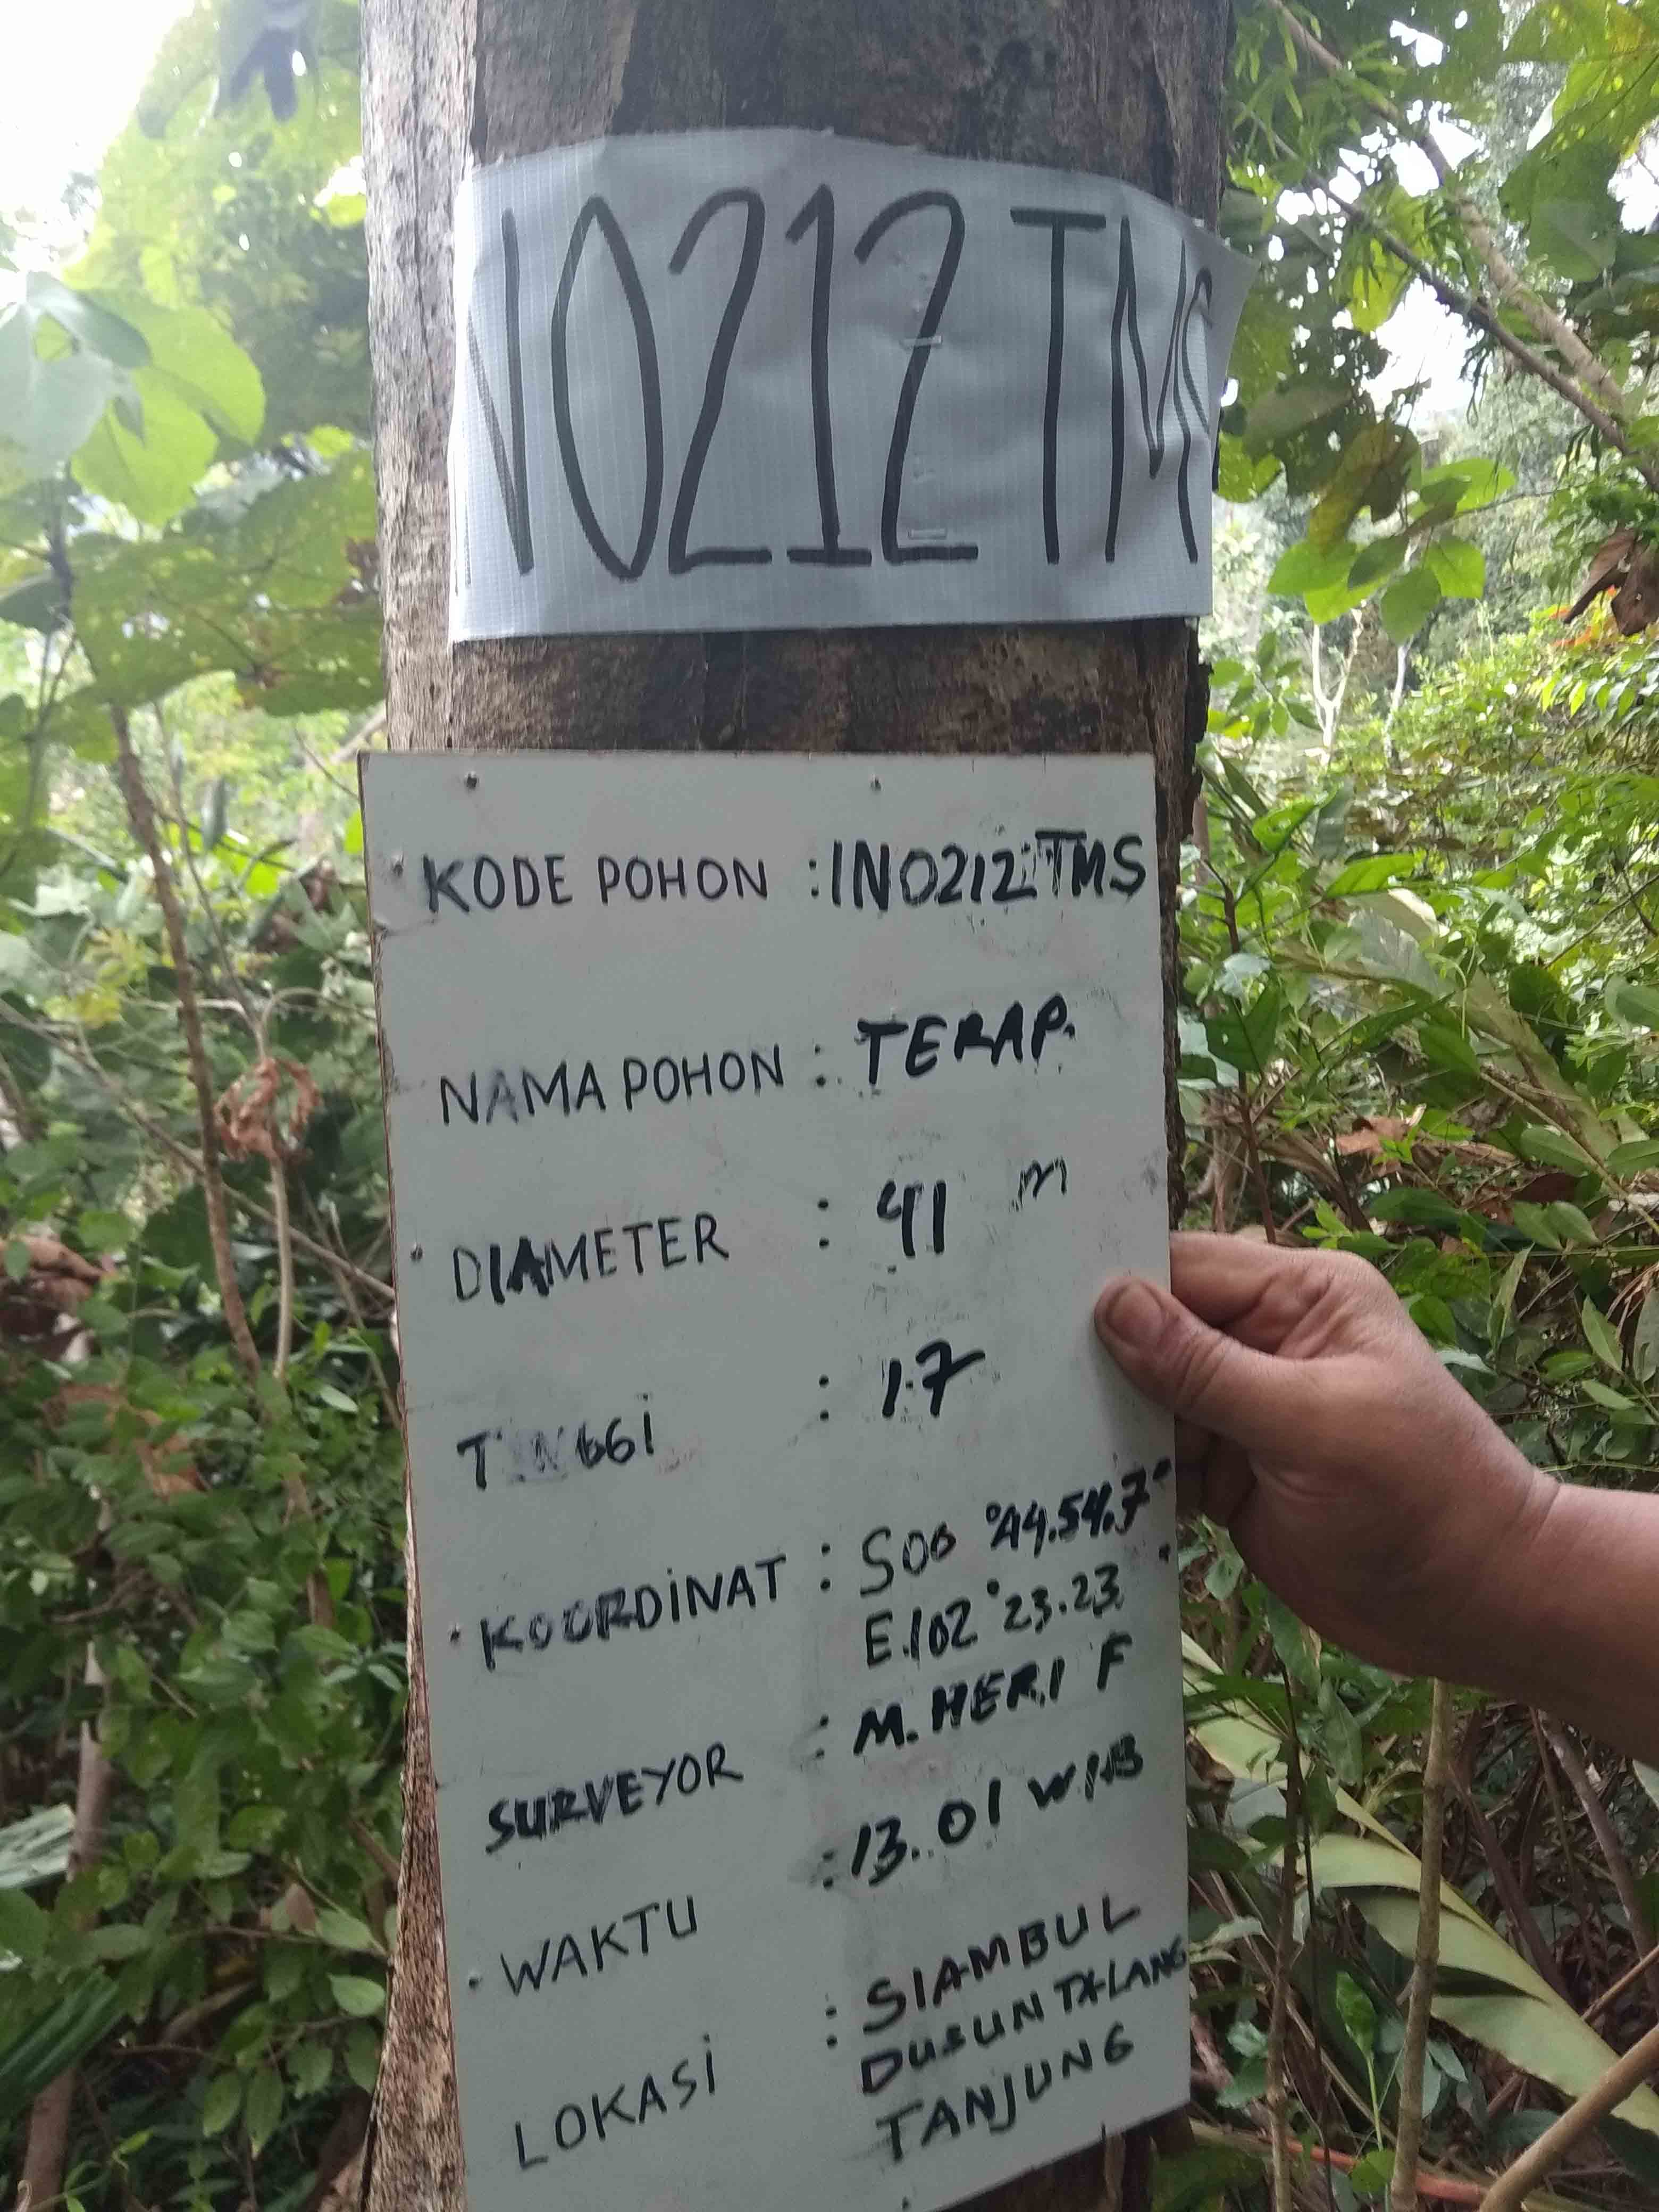 NO212TMS
KODE POHON : INO212TMS
NAMA POHON : TERAP.
DIAMETER : 41 m
TINGGI : 17
KOORDINAT : S00 °44.54.7"
E.102°23.23
SURVEYOR : M. HERI F
WAKTU : 13.01 WIB
LOKASI : SIAMBUL
DUSUN TALANG
TANJUNG